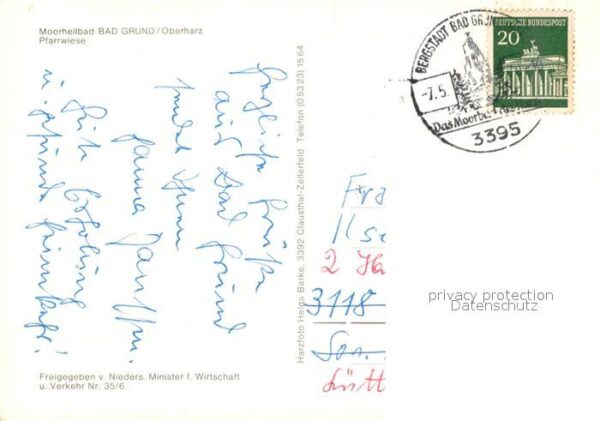 Moorheilbad BAD GRUND/Oberharz
Pfarrwiese
Herzliche Grüße
aus Bad Grund
sendet Ihnen
Hanna
Gute Erholung
u. gesunde Heimkehr!
Freigegeben v. Nieders. Minister f. Wirtschaft
u. Verkehr Nr. 35/6
Harzfoto Helga Barke, 3392 Clausthal-Zellerfeld Telefon (0 53 23) 15 64
BERGSTADT BAD GRUN
-7.5.
Das Moorb
3395
DEUTSCHE BUNDESPOST
20
Fra
Ilse
2 Ha
3118
privacy protection
Datenschutz